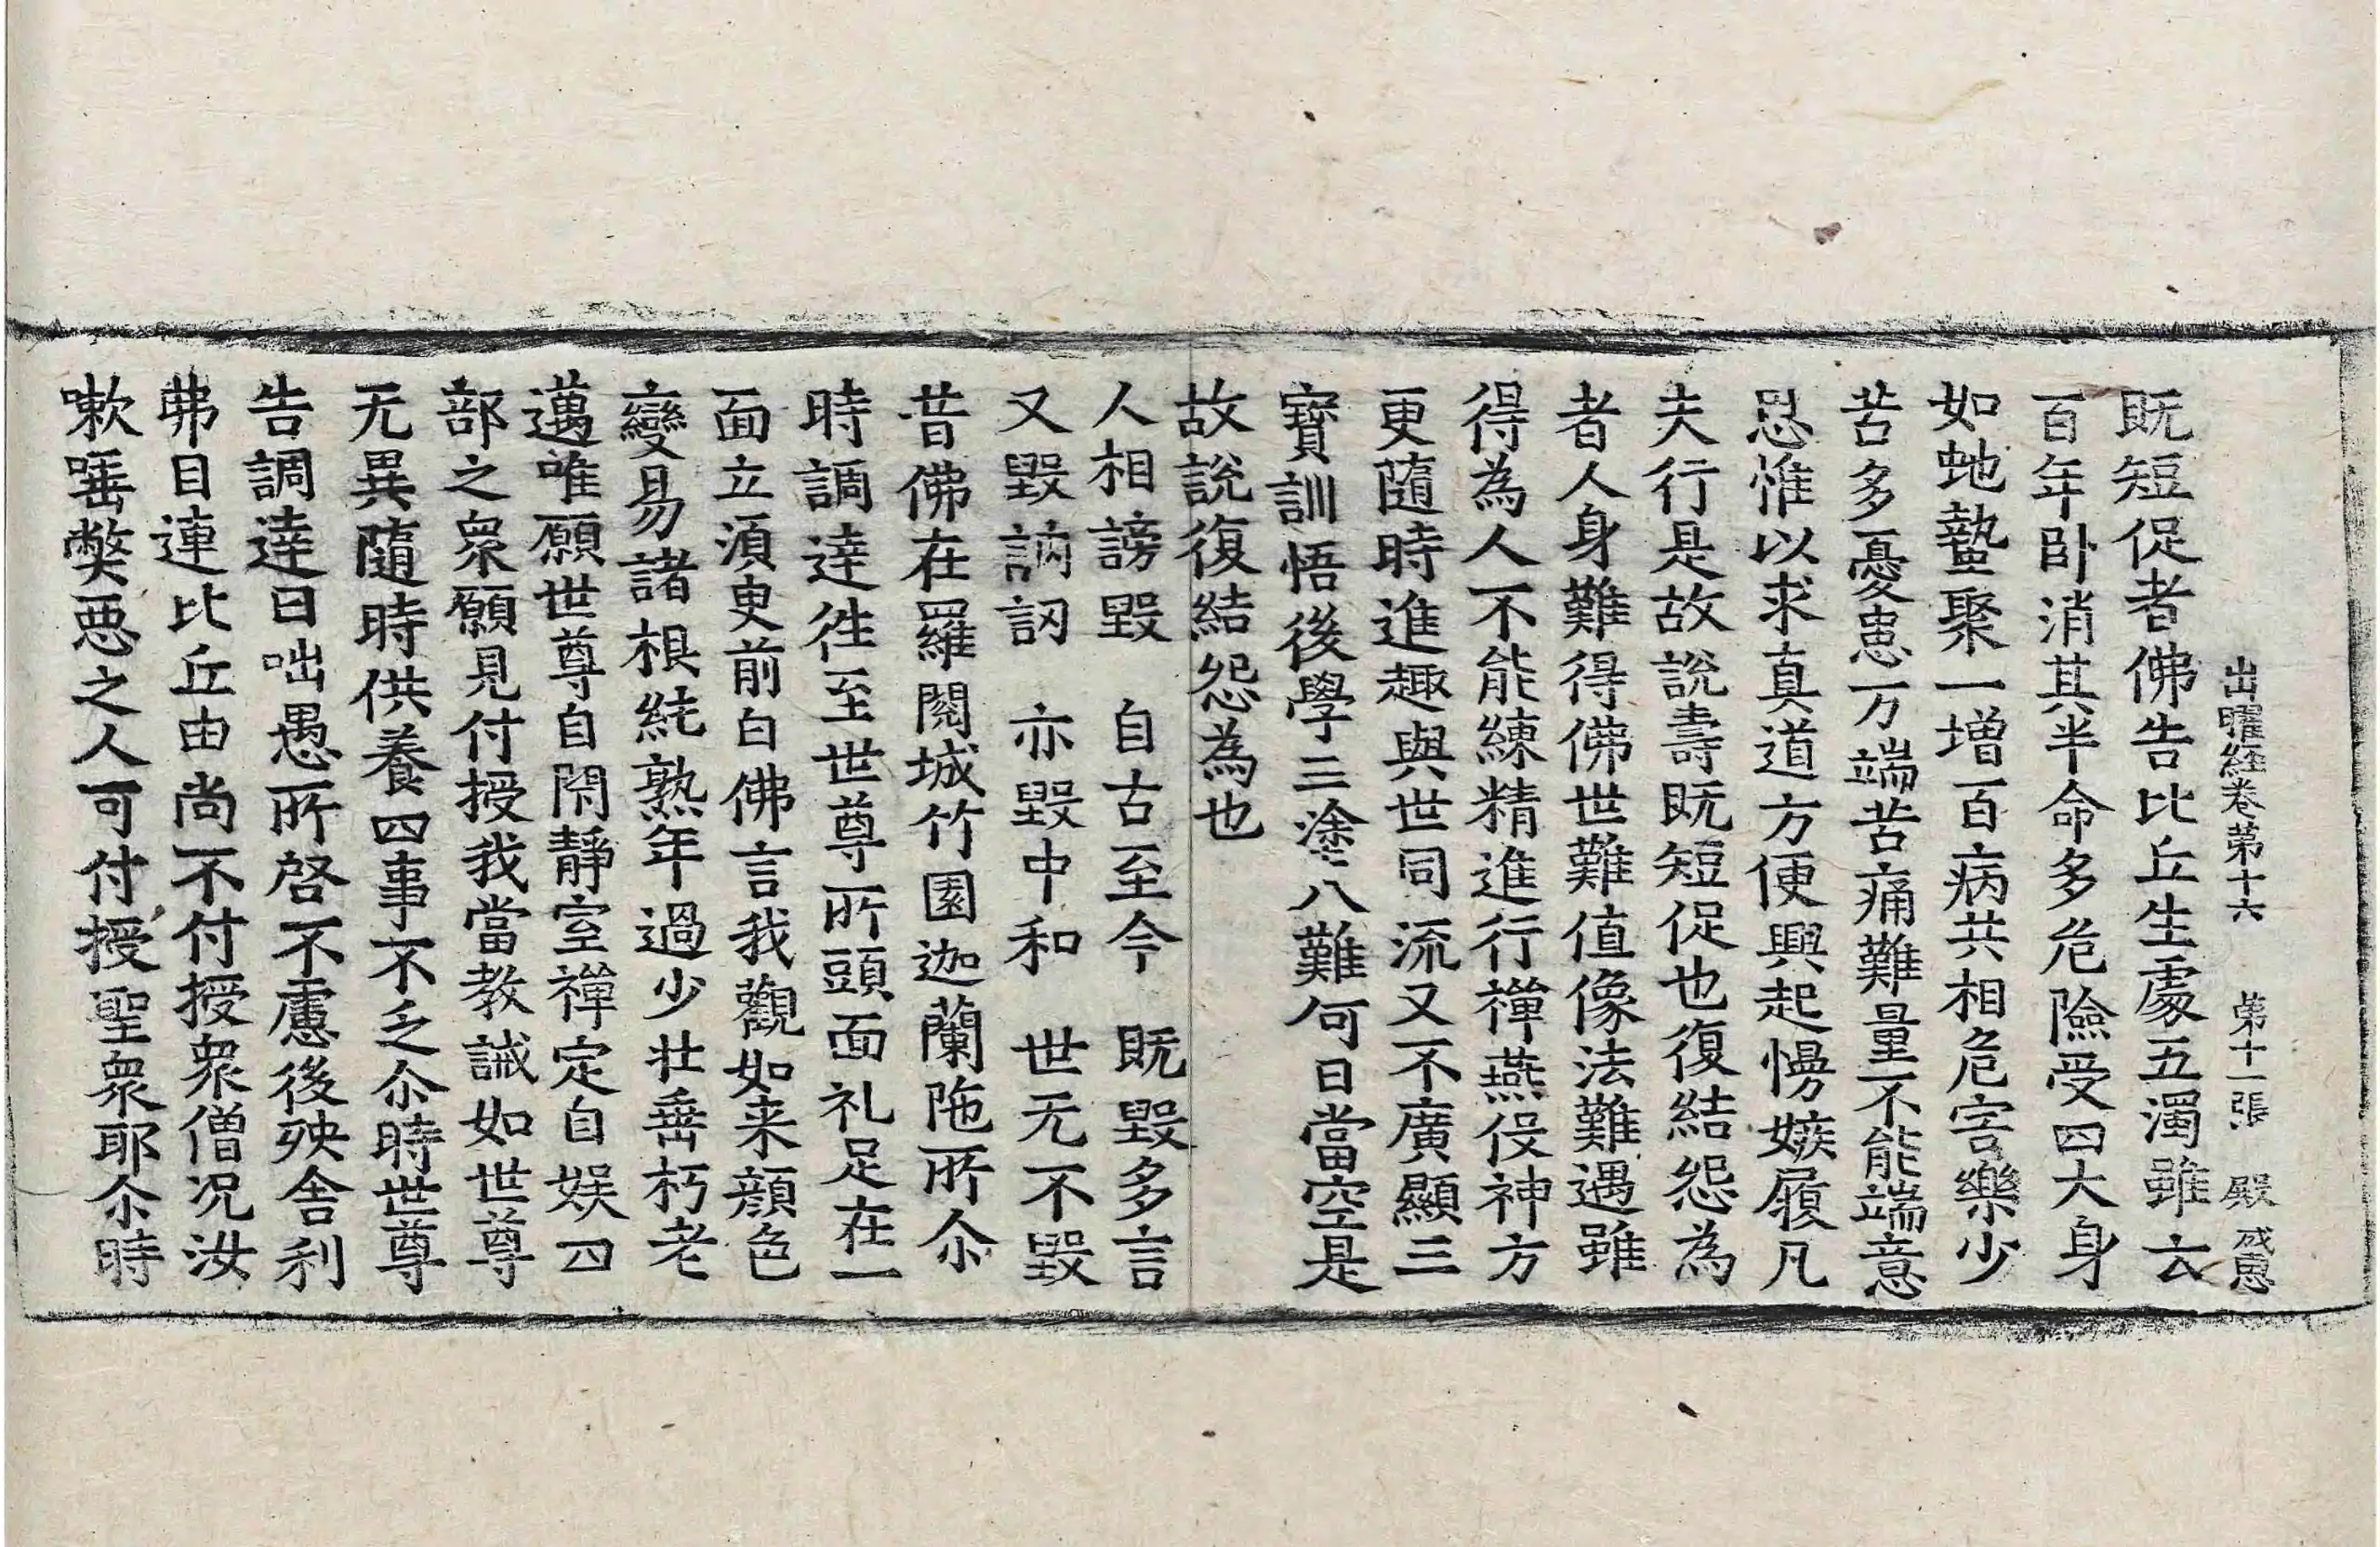 出曜經卷第十六 第十一張 殿 成惠
既短促者佛告比丘生處五濁雖云
百年卧消其半命多危險受四大身
如虵蟄聚一增百病共相危害樂少
苦多憂患万端苦痛難量不能端意
思惟以求真道方便興起慢嫉履凡
夫行是故說壽既短促也復結怨為
者人身難得佛世難值像法難遇雖
得為人不能練精進行禪燕伇神方
更隨時進趣與世同流又不廣顯三
寶訓悟後學三塗八難何日當空是
故說復結怨為也
人相謗毀 自古至今 既毀多言
又毀訥訒 亦毀中和 世无不毀
昔佛在羅閱城竹園迦蘭陁所尒
時調達徃至世尊所頭面礼足在一
面立湏臾前白佛言我觀如来顔色
變易諸根純熟年過少壮垂朽老
邁唯願世尊自閑靜室禪定自娱四
部之衆願見付授我當教誡如世尊
无異隨時供養四事不乏尒時世尊
告調達曰咄愚所啓不慮後殃舍利
弗目連比丘由尚不付授衆僧況汝
嗽唾弊惡之人可付授聖衆耶尒時